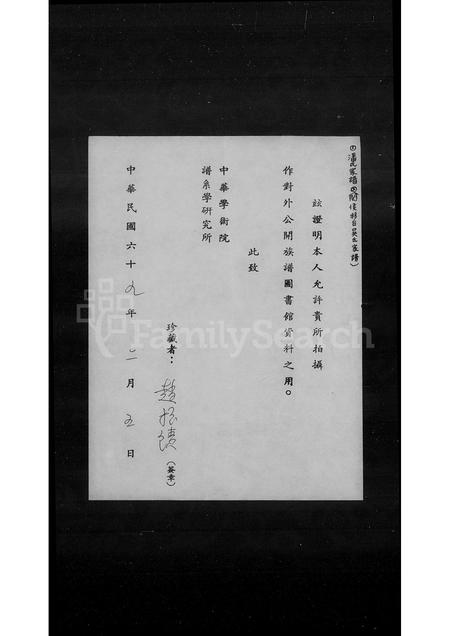 ①潘氏家譜②附侯彭吳氏家譜)
茲證明本人允許貴所拍攝
作對外公開族譜圖書館資料之用。
此致
中華學術院
譜系學研究所
珍藏者:趙振績(簽章)
中華民國六十九年二月五日
FamilySearch